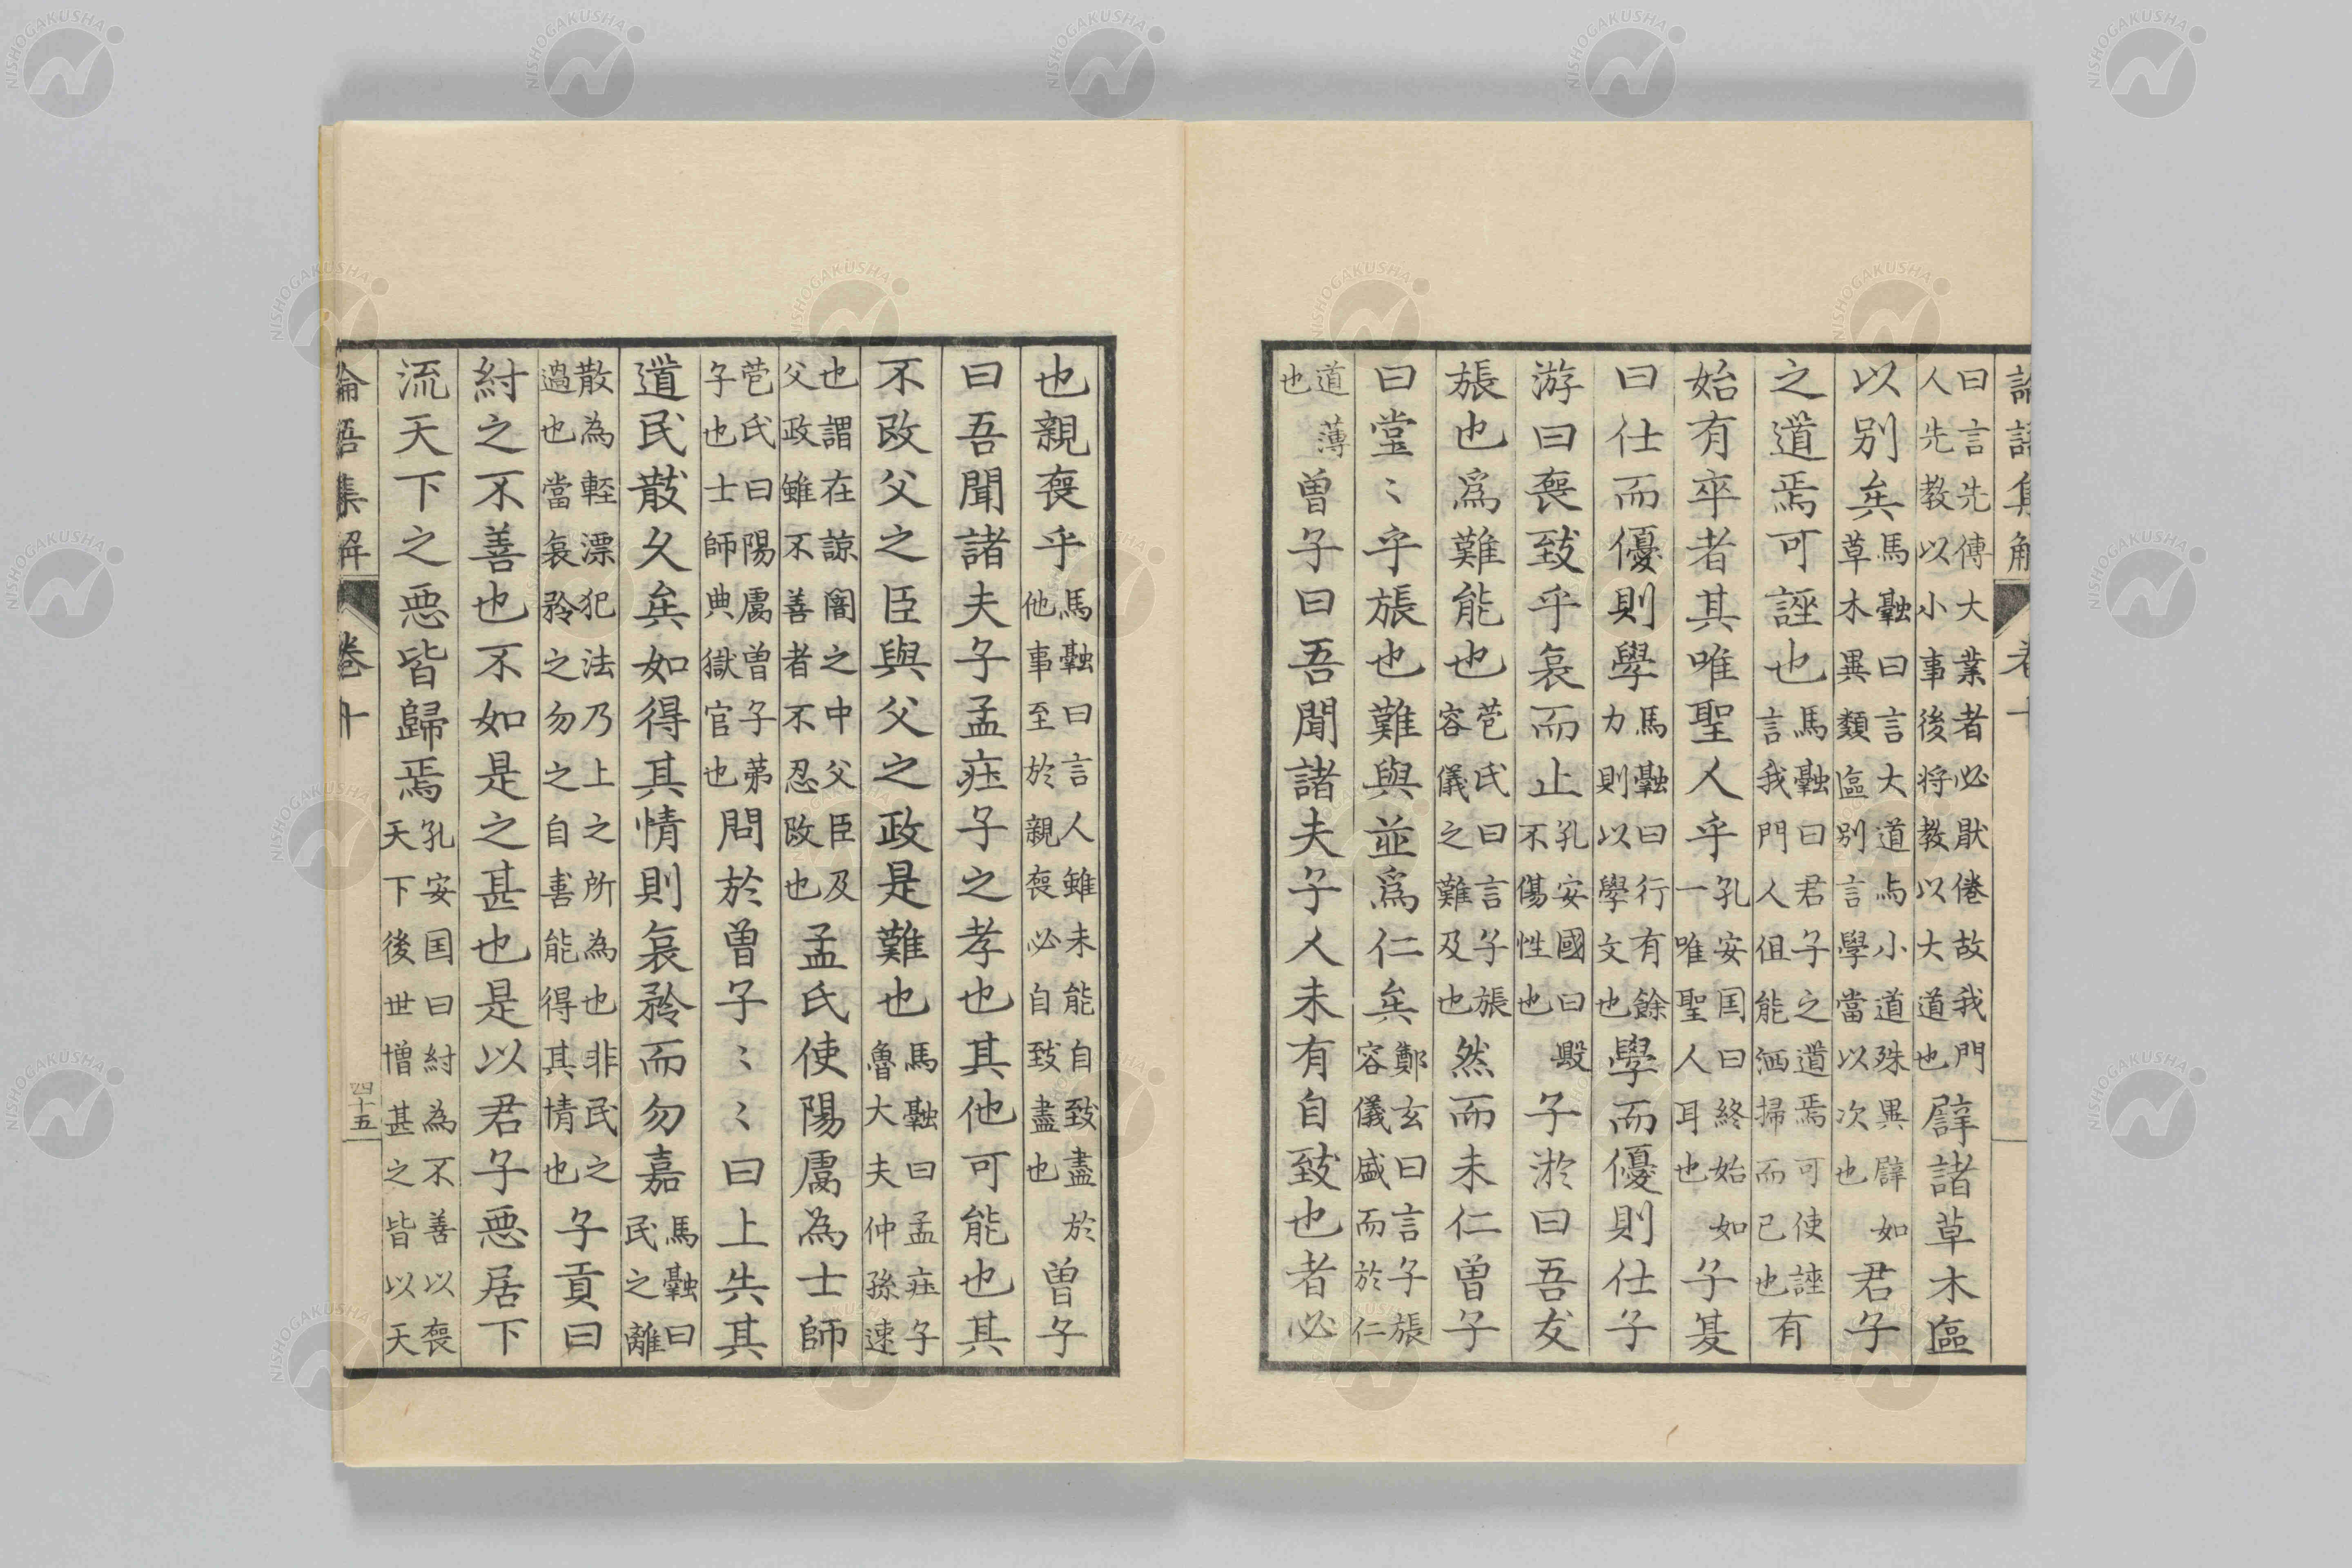 論語集解　卷十
曰言先傳大業者必猒倦故我門
人先教以小事後将教以大道也
譬諸草木區
以别矣
馬融曰言大道与小道殊異譬如
草木異類區别言學當以次也
君子
之道焉可誣也
馬融曰君子之道焉可使誣
言我門人但能洒掃而已也
有
始有卒者其唯聖人乎
孔安囯曰終始如
一唯聖人耳也
子夏
曰仕而優則學
馬融曰行有餘
力則以學文也
學而優則仕子
游曰喪致乎哀而止
孔安國曰毁
不傷性也
子游曰吾友
張也爲難能也
苞氏曰言子張
容儀之難及也
然而未仁曾子
曰堂〻乎張也難與並爲仁矣
鄭玄曰言子張
容儀盛而於仁
道薄
也
曽子曰吾聞諸夫子人未有自致也者必
也親喪乎
馬融曰言人雖未能自致盡於
他事至於親喪必自致盡也
曽子
曰吾聞諸夫子孟莊子之孝也其他可能也其
不改父之臣與父之政是難也
馬融曰孟莊子
魯大夫仲孫速
也謂在諒闇之中父臣及
父政雖不善者不忍改也
孟氏使陽膚為士師
苞氏曰陽膚曽子弟
子也士師典獄官也
問於曽子〻〻曰上失其
道民散久矣如得其情則哀矜而勿嘉
馬融曰
民之離
散為輕漂犯法乃上之所為也非民之
過也當哀矜之勿之自憙能得其情也
子貢曰
紂之不善也不如是之甚也是以君子悪居下
流天下之悪皆歸焉
孔安囯曰紂為不善以喪
天下後世憎甚之皆以天
論語集解　卷十　四十五